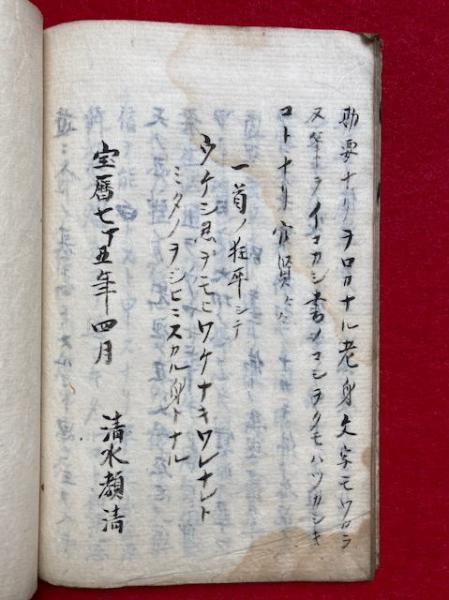 肋要ナリヲロカナル老身文字モワロシ
又筆ヲイコカシ書ノコシヲクモハツカシキ
コトナリ
一首ノ狂平シテ
ウケシ忍デモヒワケナキワレナレト
ミタノヲジヒニスカル身トナル
宝暦七丁丑年四月
清水顔清